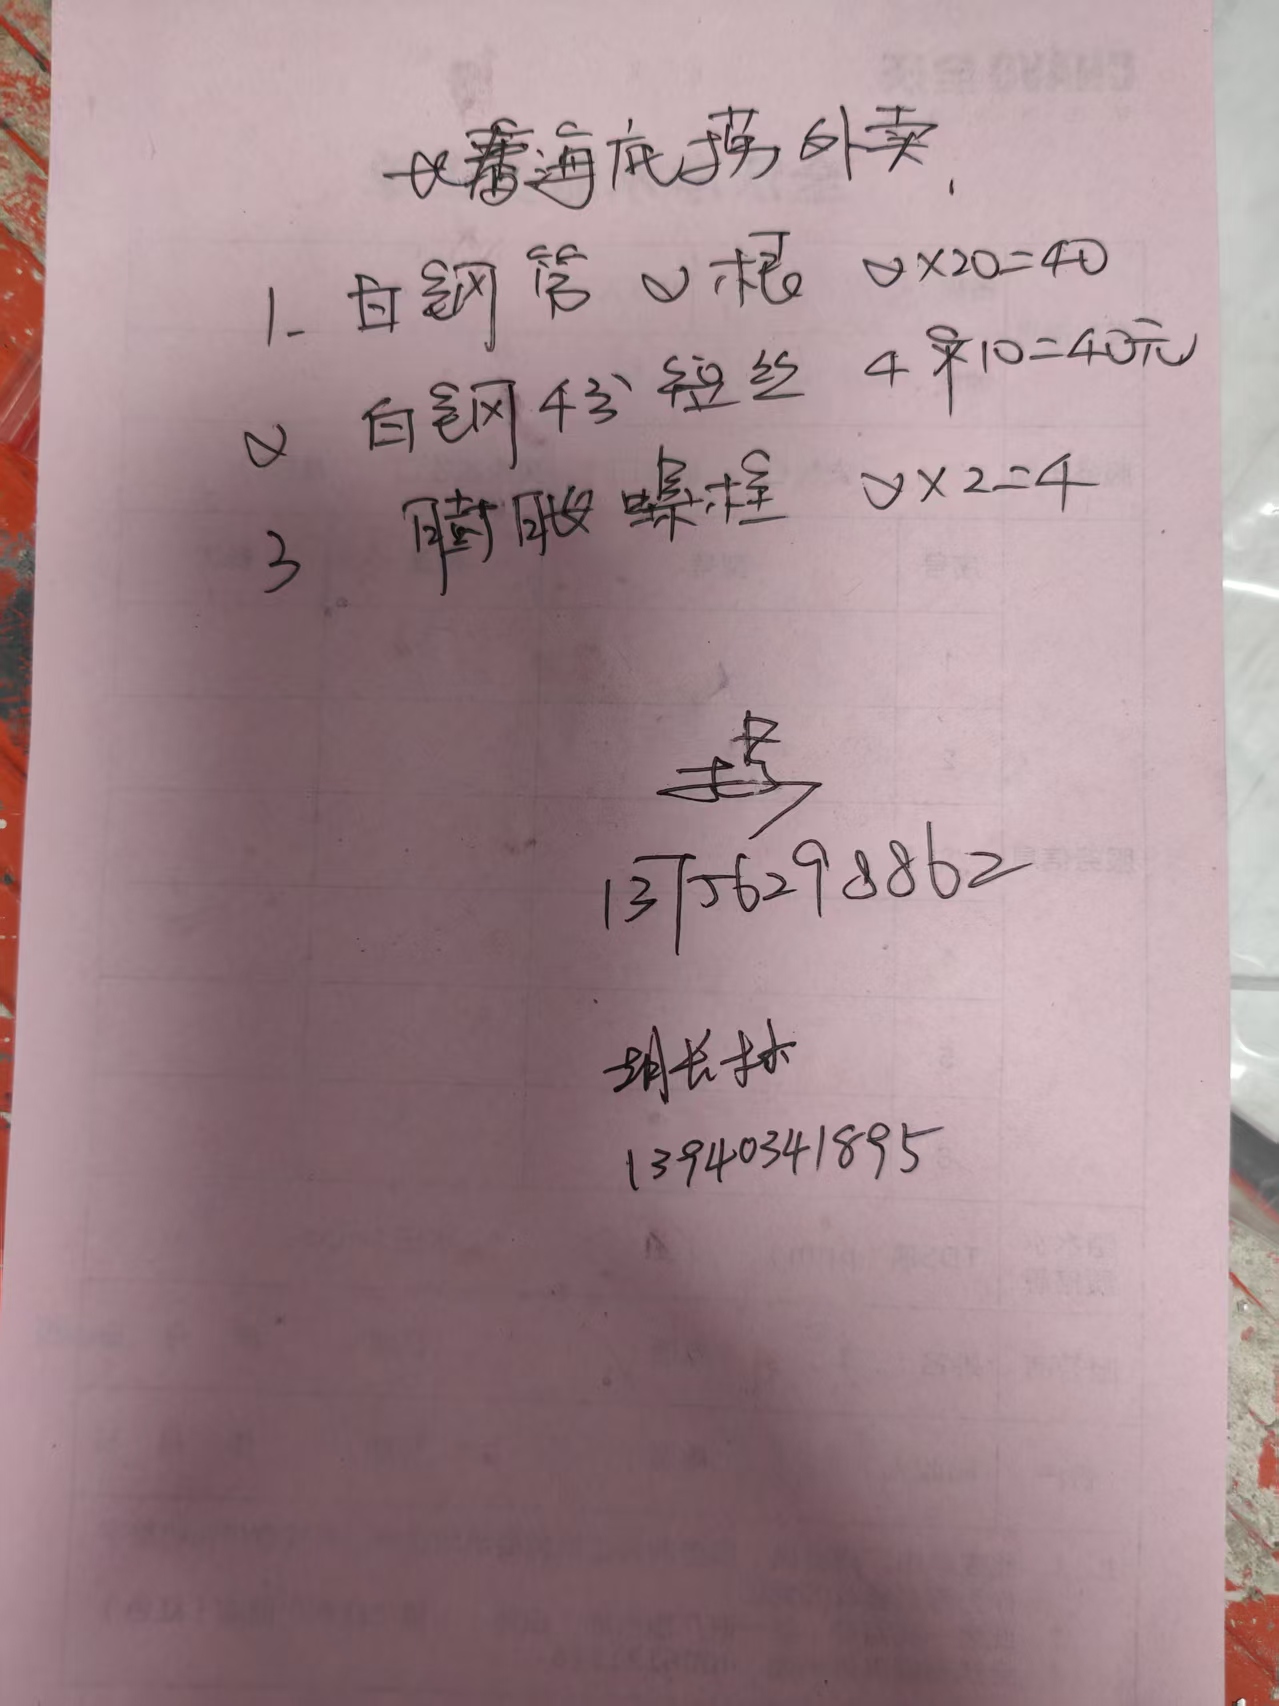 海底捞外卖.
1- 白钢管 2根 2×20=40
2 白钢4分短丝 4×10=40元
3 膨胀螺栓 2×2=4
13756298862
胡长林
13940341895